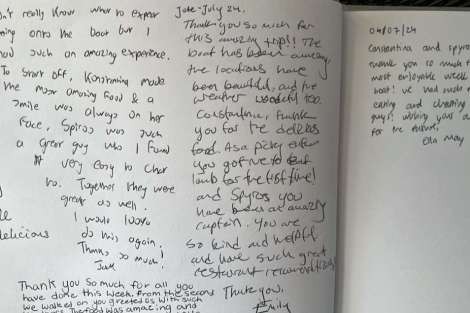 n't really know what to expect
ing onto the boat but I
had such an amazing experience.
To start off, Konstantina made
the most amazing food & a
smile was always on her
face, Spiros was such
a great guy who I found
it very easy to chat
to. Together they were
great as well.
I would 100%
do this again.
Thanks so much!
Jack
le
delicious
June-July 24.
Thank you so much for
this amazing trip!! The
boat has been amazing,
the locations have
been beautiful, and the
weather wonderful too.
Constantina, thank
you for the delicious
food. As a picky eater
you got me to eat
lamb for the first time!
and Spyros you
have been an amazing
captain. You are
so kind and helpful
and have such great
restaurant recommendations!
Thank you,
Emily
Thank you so much for all you
have done this week. From the second
we walked on you greeted us with such
The food was amazing and
04/07/24
Constantina and Spyros
thank you so much
most enjoyable week
boat! we had such
eating and chatting
guys! wishing you a
for the future,
Ella May